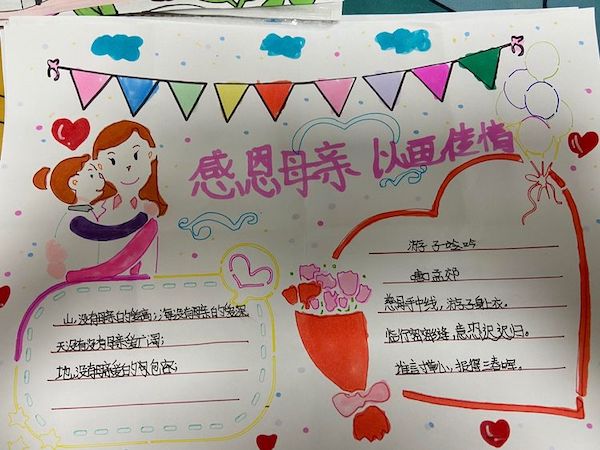 感恩母亲 以画传情
山,没有母亲的爱高;海没有母亲的爱深
天没有没有母亲爱广阔;
地,没有母亲爱的包容;
游子吟
孟郊
慈母手中线,游子身上衣。
临行密密缝,意恐迟迟归。
谁言寸草心,报得三春晖。